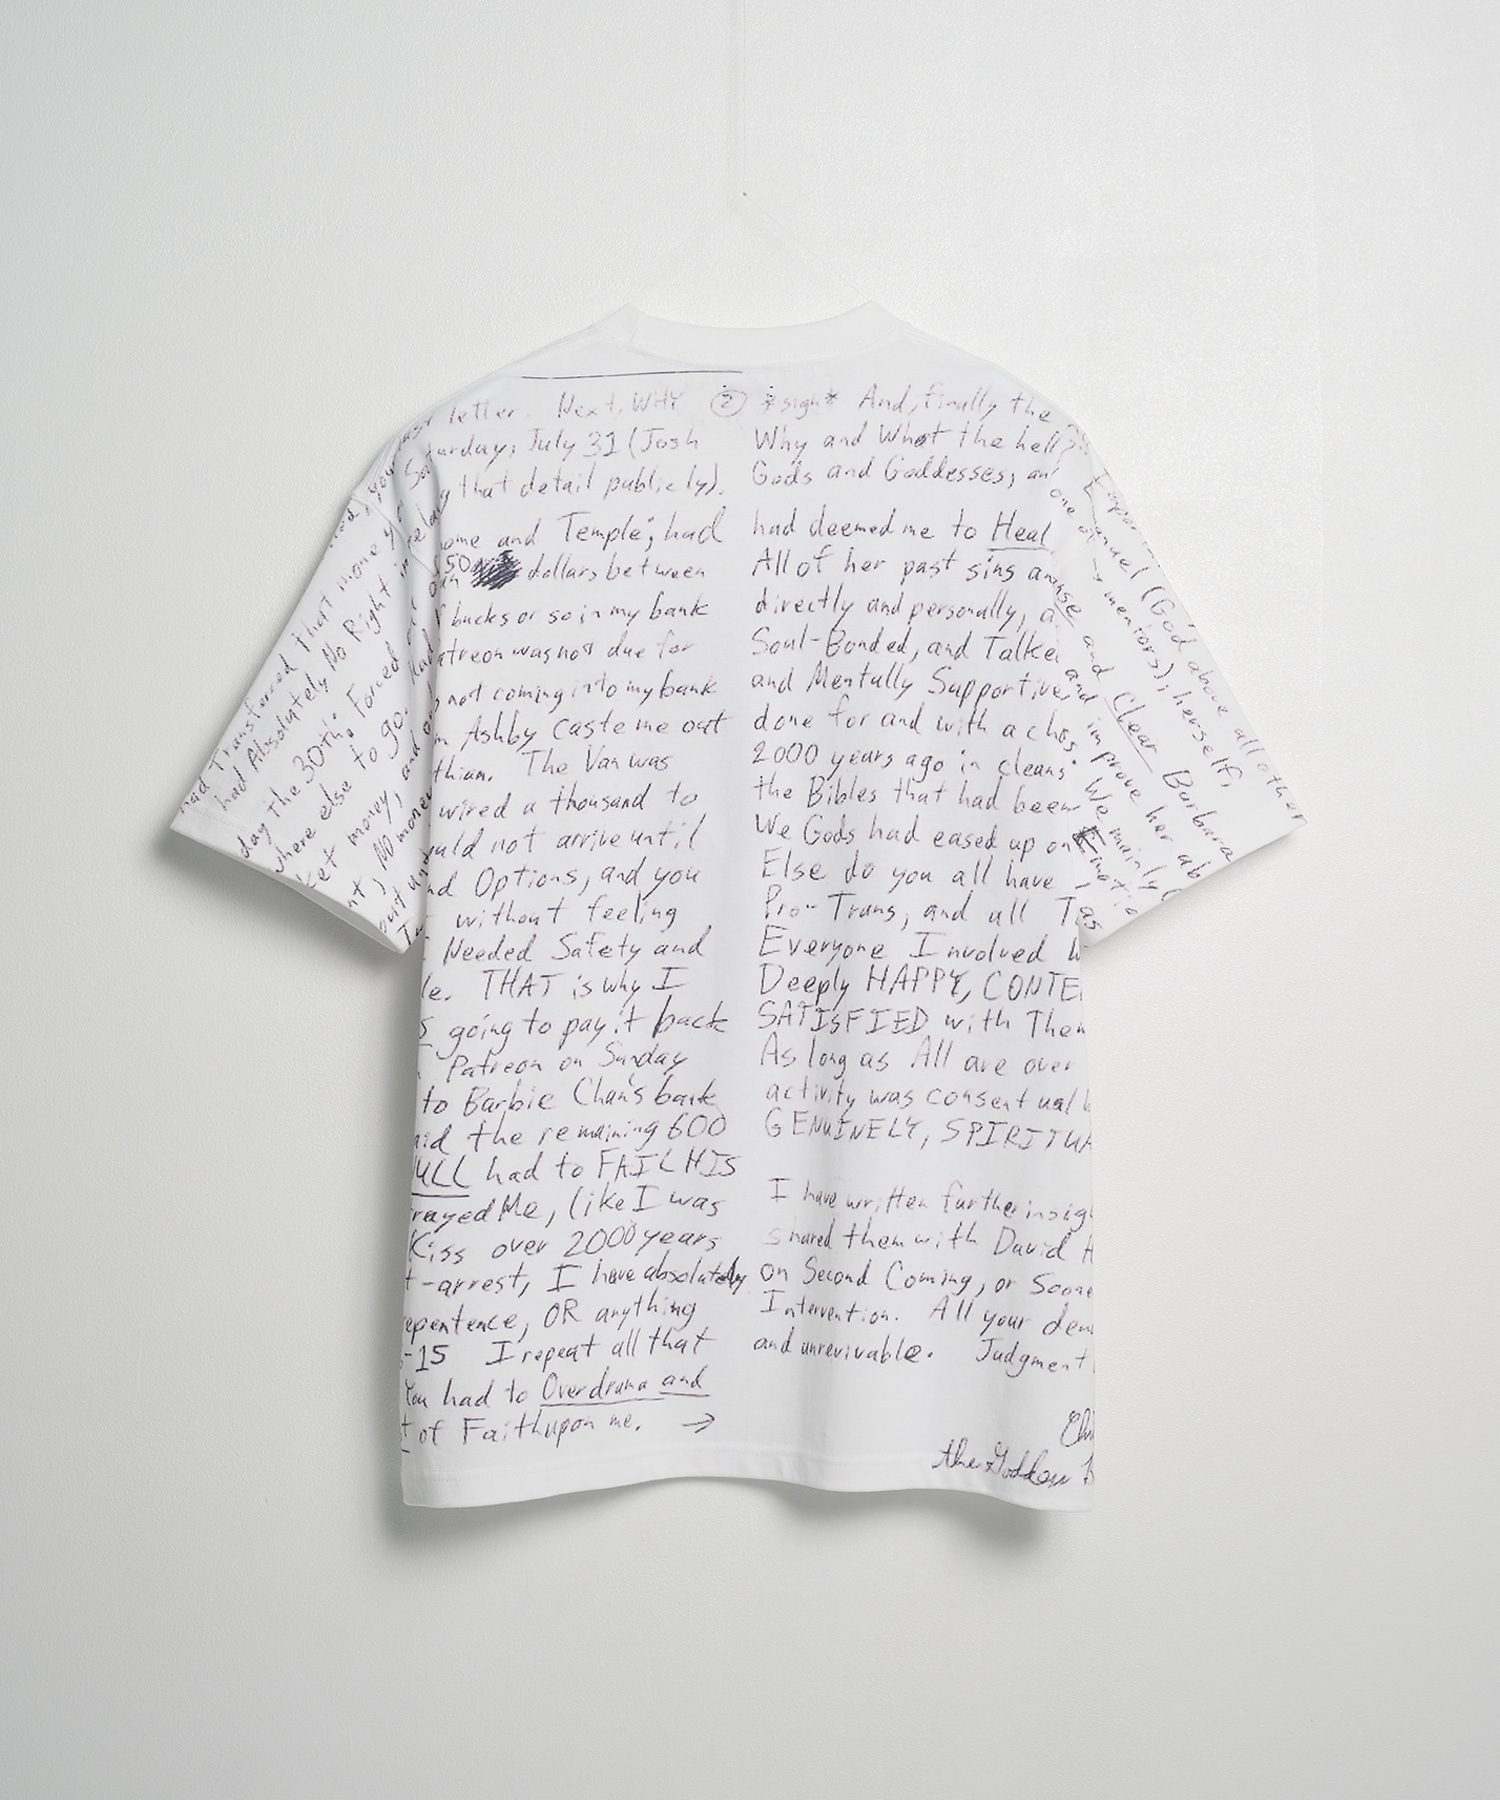 your last letter. Next, WHY
Saturday, July 31 (Josh
that detail publicly).
ome and Temple; had
150 dollars between
bucks or so in my bank
atreon was not due for
not coming into my bank
Ashby Caste me out
thian. The Van was
wired a thousand to
uld not arrive until
nd Options, and you
without feeling
Needed Safety and
le. THAT is why I
S going to pay it back
Patreon on Sunday
to Barbie Chan's bank
aid the remaining 600
ULL had to FAIL HIS
rayed Me, like I was
Kiss over 2000 years
t-arrest, I have absolutely
epentence, OR anything
-15 I repeat all that
You had to Overdrama and
t of Faith upon me. →
had Transferred that money
had Absolutely No Right in
day the 30th. Forced
where else to go.
ket money, and
nt, No money
out
② *sigh* And, finally the
Why and What the hell?
Gods and Goddesses, an
had deemed me to Heal
All of her past sins an
directly and personally, a
Soul-Bonded, and Talke
and Mentally Supportive,
done for and with a chos
2000 years ago in cleans
the Bibles that had been
We Gods had eased up on
Else do you all have
Pro-Trans, and all T
Everyone Involved W
Deeply HAPPY, CONTE
SATISFIED with Them
As long as All are over
activity was consentual b
GENUINELY, SPIRITUA
I have written further insig
shared them with David H
on Second Coming, or Soone
Intervention. All your dem
and unrevivable. Judgment
the Goddess
(God above all other
mentors); herself,
and Clear Barbara
and improve her ab
We mainly
Emotio
as